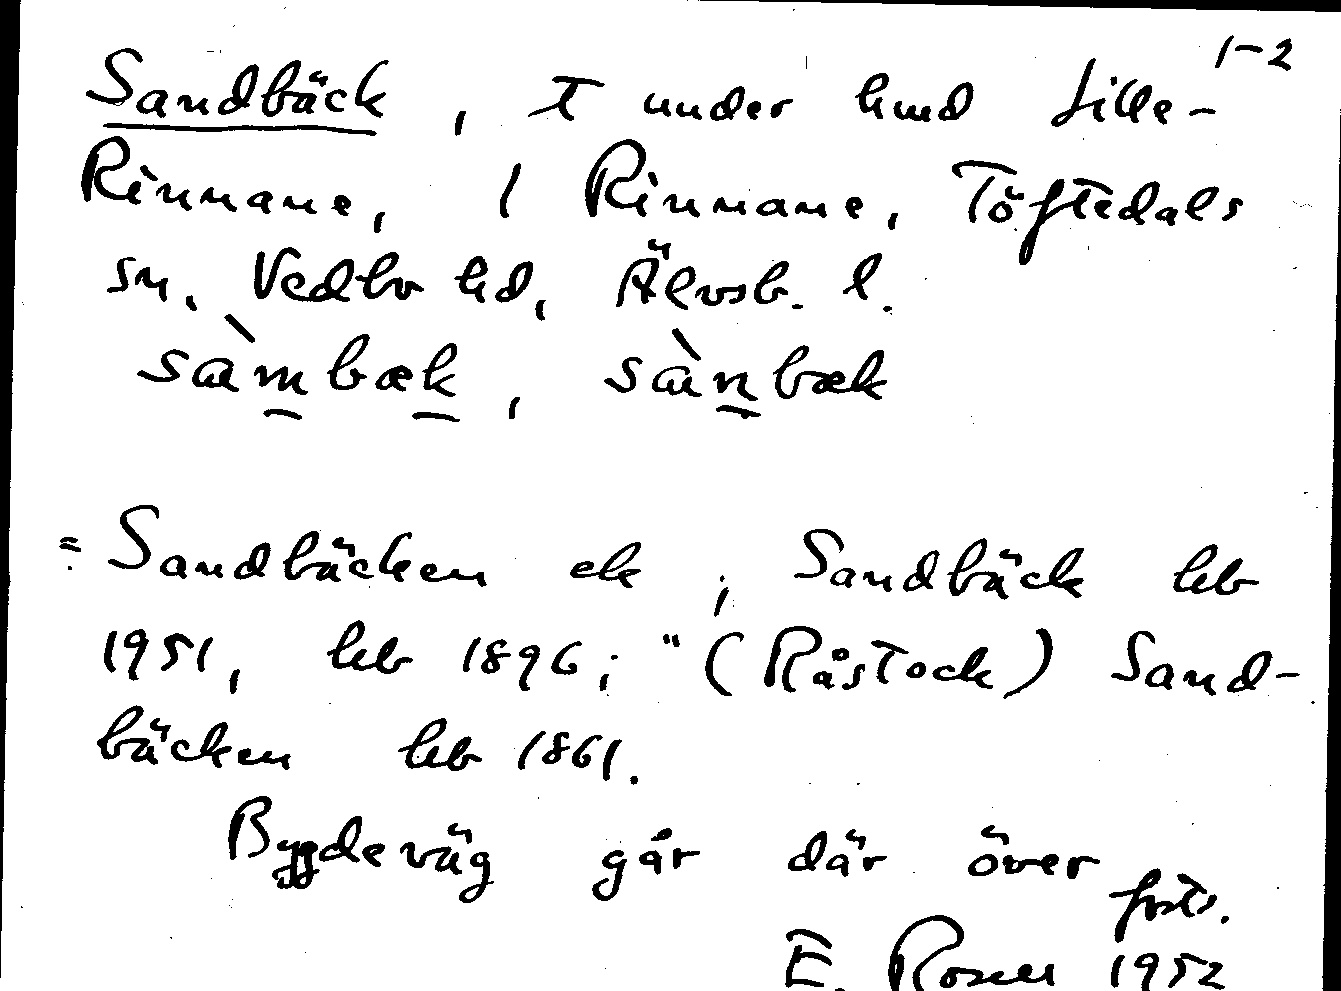 1-2
Sandbäck, T under hmd Lille-
Rinnane, 1 Rinnane, Töftedals
sn, Vedbo hd, Älvsb. l.
sàmbæk, sànbæk
= Sandbäcken ek; Sandbäck hb
1951, hb 1896; "(Råstock) Sand-
bäcken hb 1861.
Bygdeväg går där över
forts.
E. Rosell 1952